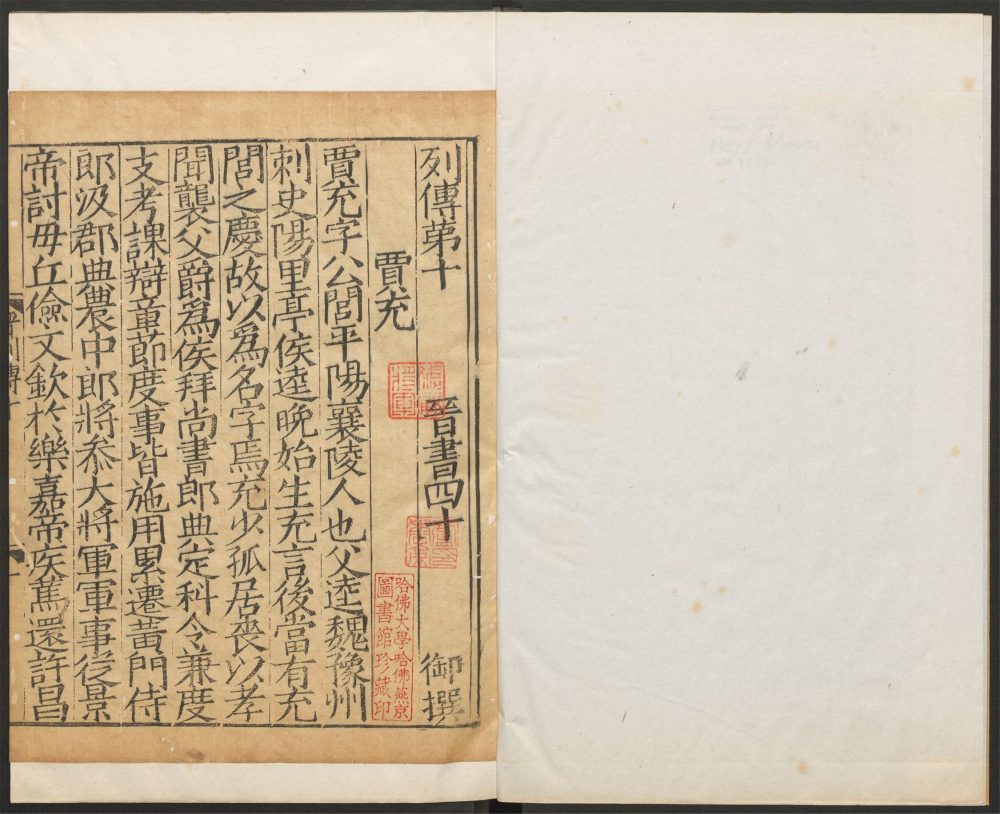 列傳第十　晉書四十　御撰
賈充
賈充字公閭平陽襄陵人也父逵魏豫州
刺史陽里亭侯逵晚始生充言後當有充
閭之慶故以爲名字焉充少孤居喪以孝
聞襲父爵爲侯拜尚書郎典定科令兼度
支考課辯章節度事皆施用累遷黃門侍
郎汲郡典農中郎將叅大將軍軍事從景
帝討毋丘儉文欽於樂嘉帝疾篤還許昌
哈佛大學哈佛燕京
圖書館珍藏印